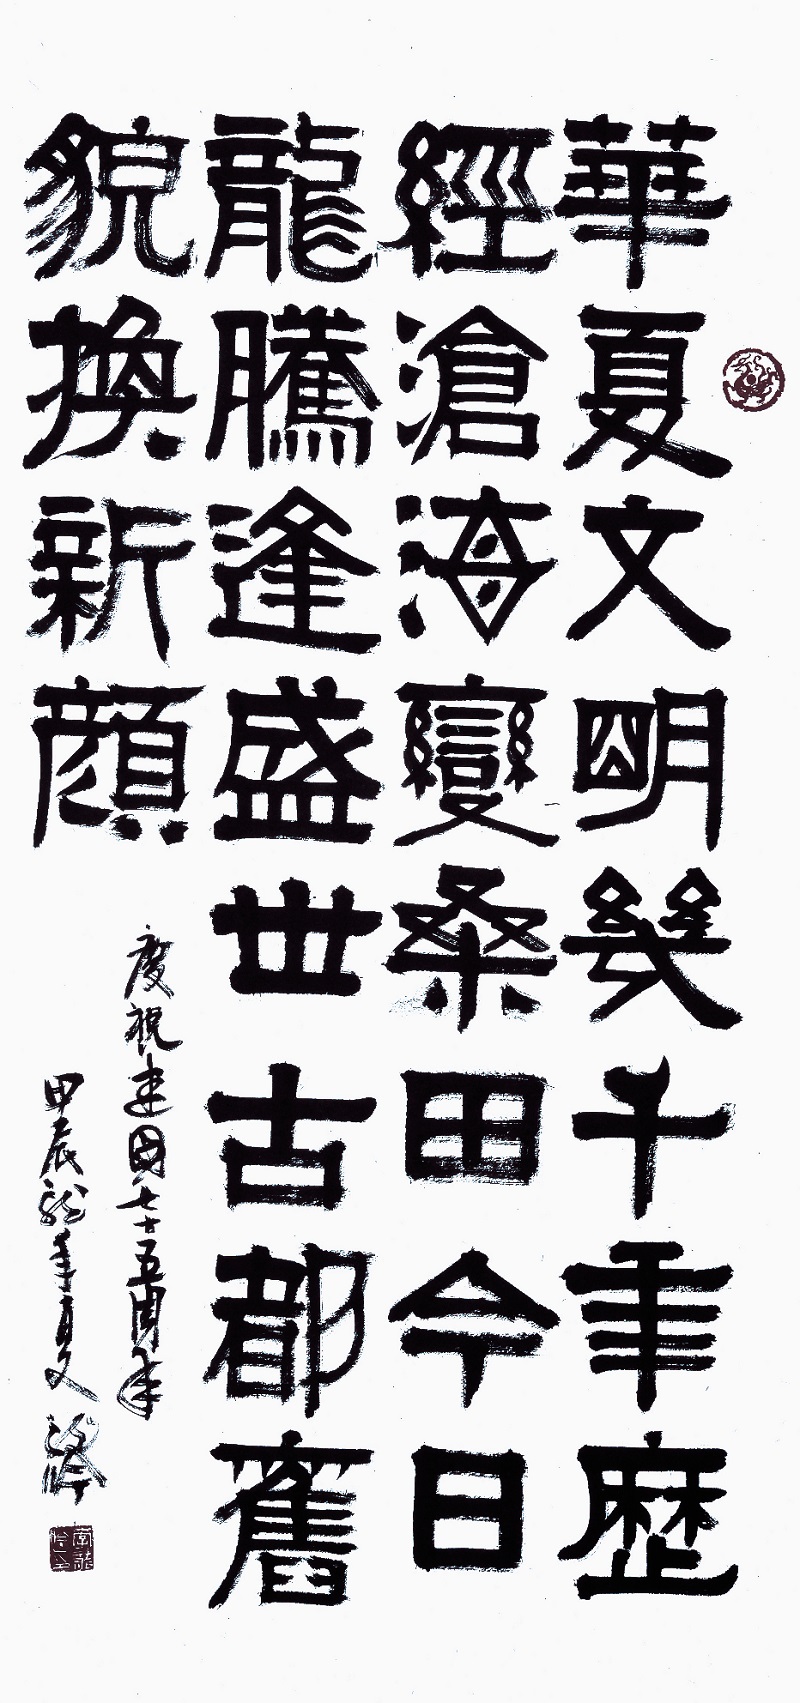 華夏文明幾千年歷
經滄海變桑田今日
龍騰逢盛世古都舊
貌換新顏
慶祝建國七十五周年
甲辰龍年夏文